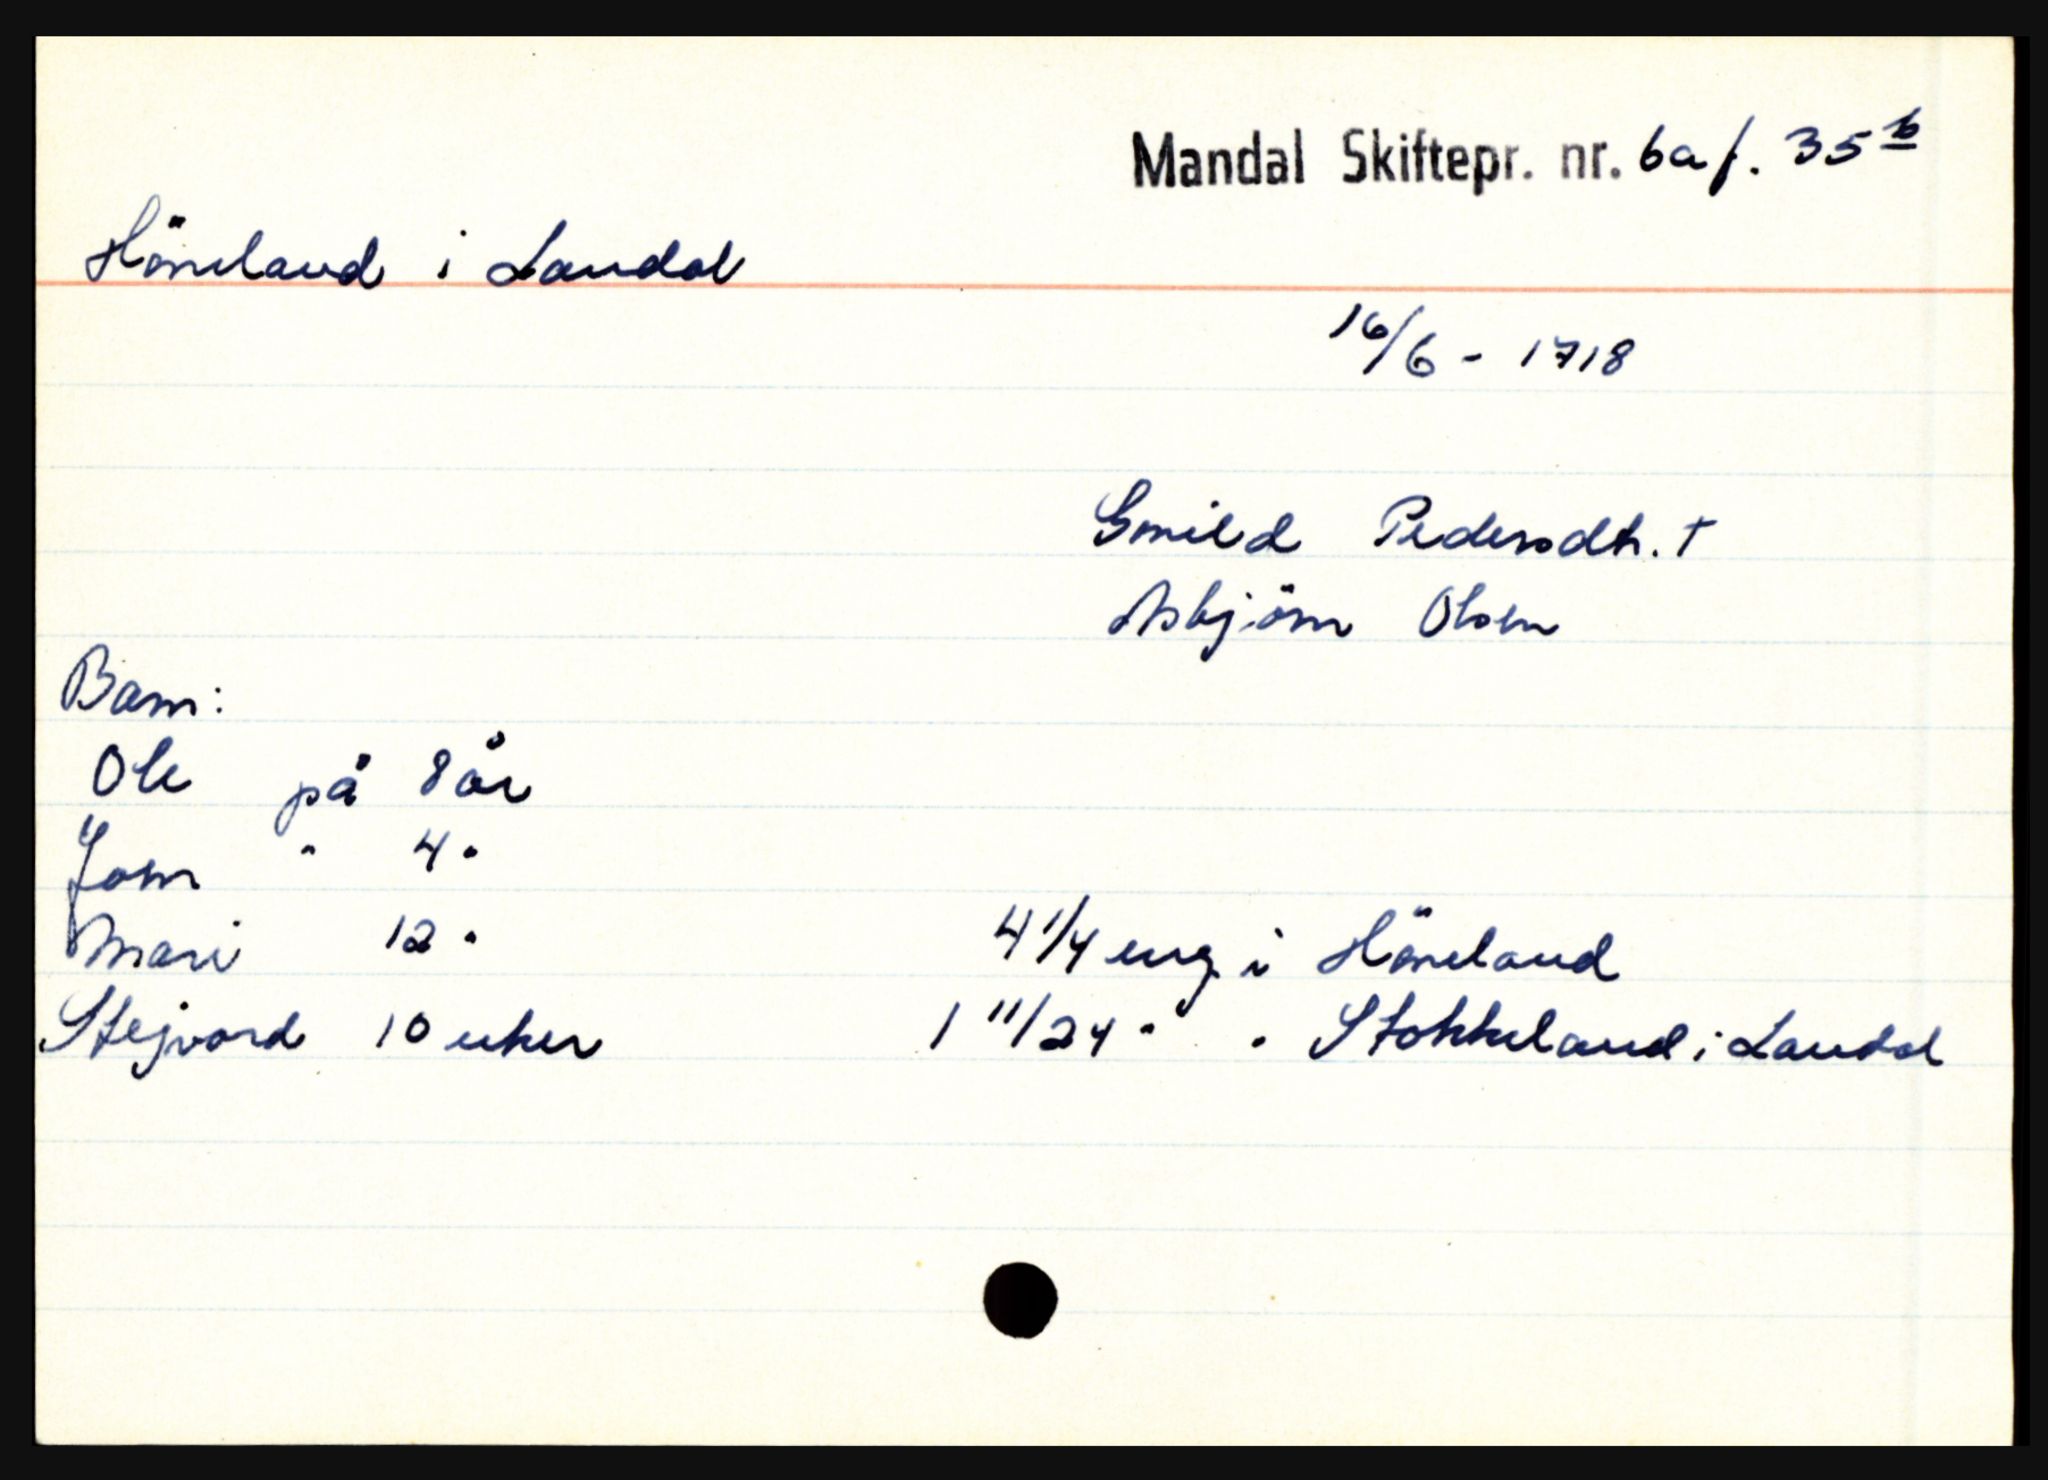 Mandal Skiftepr. nr. 6a f. 35 b
Höneland i Laudal
16/6 - 1718
Gunild Pedersdtr. †
Asbjörn Olsen
Barn:
Ole på 8 år
Jørn " 4 "
Mari 12 " 4 1/4 eng. i Höneland
Stejvord 10 uker 1 11/24 " " Stokkeland i Laudal